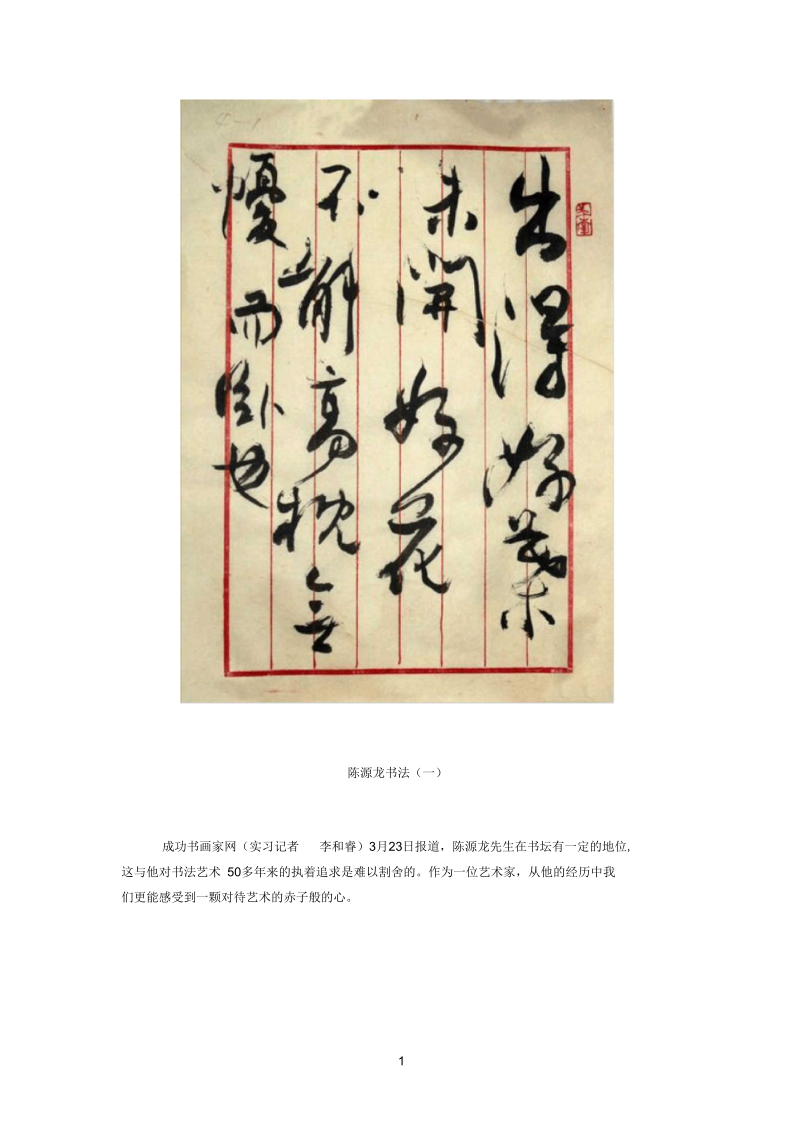 出得好葉
未開好花
不解高枕無
懮而臥也
陈源龙书法（一）
成功书画家网（实习记者 李和睿）3月23日报道，陈源龙先生在书坛有一定的地位,
这与他对书法艺术 50多年来的执着追求是难以割舍的。作为一位艺术家，从他的经历中我
们更能感受到一颗对待艺术的赤子般的心。
1